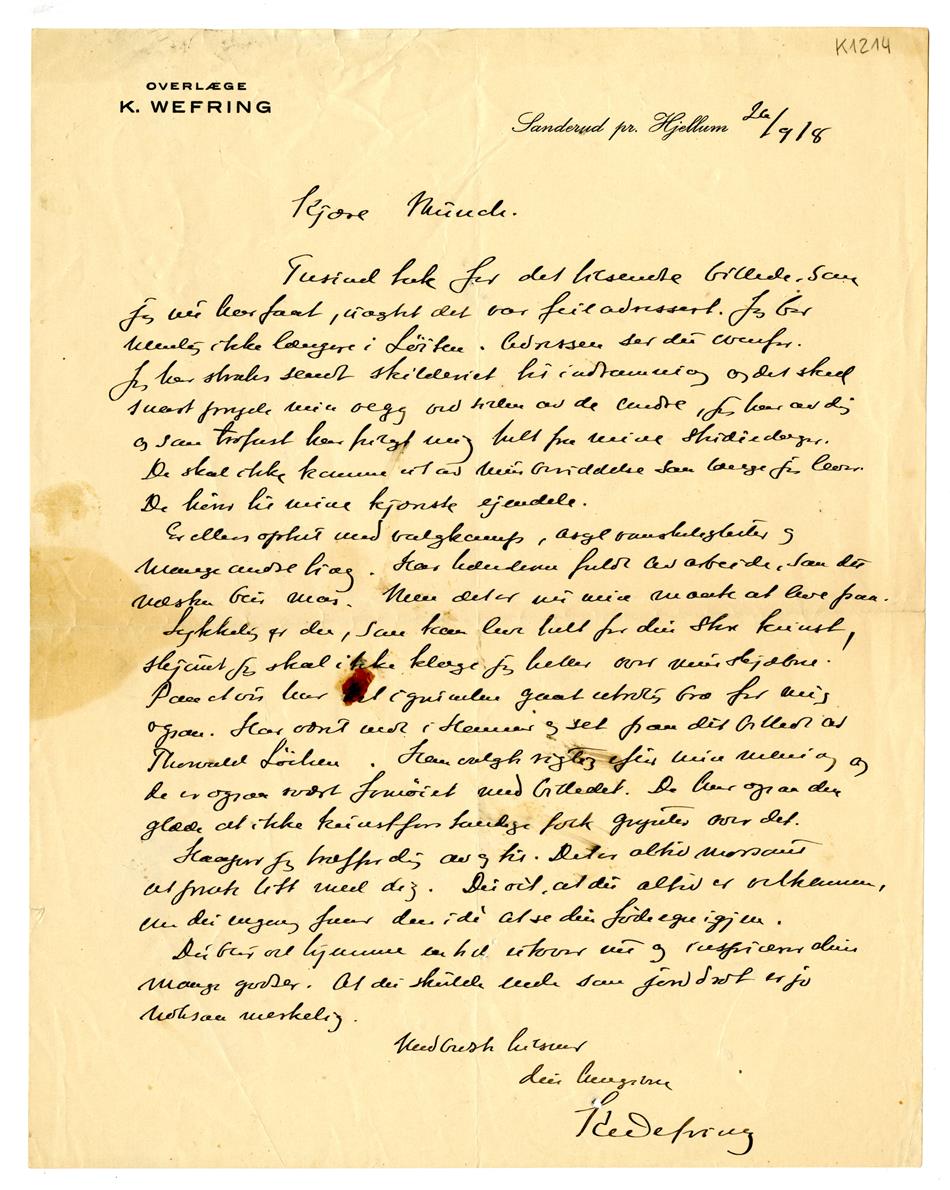 K1214
OVERLÆGE
K. WEFRING
Sanderud pr. Hjellum 26/9 18
Kjære Munch.
Tusind tak for det tilsendte billede, som
jeg nu har faat, uagtet det var feiladressert. Jeg bor
nemlig ikke længere i Løiten. Adressen ser du ovenfor.
Jeg har straks sendt skilderiet til indramning og det skal
snart pryde min vegg ved siden av de andre, jeg har av dig
og som trofast har fulgt mig helt fra mine studiedager.
De skal ikke komme ut av min besiddelse saa længe jeg lever.
De hører til mine kjæreste ejendele.
Er ellers optat med valgkamp, asylvanskeligheter og
mange andre ting. Har hænderne fuldt av arbeide, saa det
næsten blir mas. Men det er nu min maate at leve paa.
Lykkelig er du, som kan leve helt for din store kunst,
skjønt jeg skal ikke klage jeg heller over min skjæbne.
Paa et vis har det i grunden gaat utrolig bra for mig
ogsaa. Har været nede i Hamar og set paa dit billede av
Thorvald Løchen. Han valgte rigtig efter min mening og
de er ogsaa svært fornøiet med billedet. De har ogsaa den
glæde at ikke kunstforstandige folk grynter over det.
Haaper jeg træffer dig av og til. Det er altid morsomt
at prate litt med dig. Du vet, at du altid er velkommen,
om du engang faar den idé at se din fødeegn igjen.
Du blir vel hjemme en tid utover nu og inspicerer dine
mange godser. At du skulde ende som jorddrot er jo
noksaa merkelig.
Med bedste hilsener
din hengivne
K. Wefring